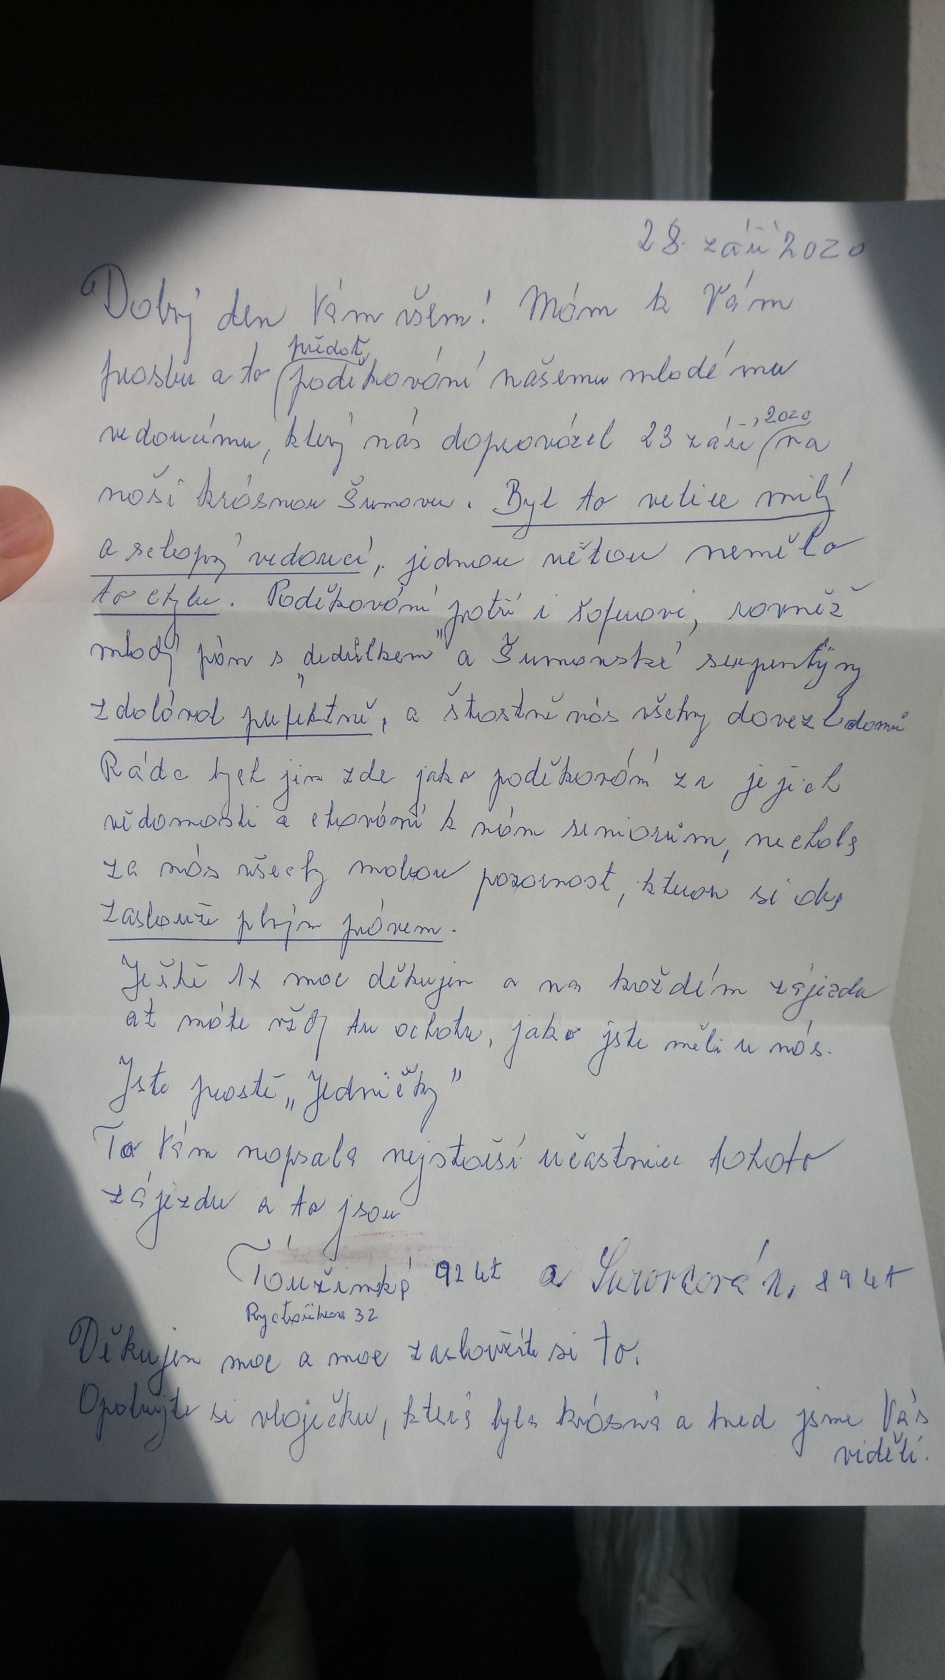 28. září 2020
Dobrý den Vám všem! Mám k Vám
předat
prosbu a to poděkování našemu mladému
vedoucímu, který nás doprovázel 23 září 2020 na
naší krásnou Šumavu. Byl to velice milý
a schopný vedoucí, jednou větou nemělo
to chybu. Poděkování patří i šoferovi, rovněž
mladý pán s "dědulkem" a Šumavské serpentýny
zdolával perfektně, a šťastně nás všechny dovezl domů
Ráda bych jim zde jako poděkování za jejich
vědomosti a chování k nám seniorům, nechala
za nás všechy malou pozornost, kterou si oba
zaslouží plným právem.
Ještě 1x moc děkujem a na každém zájezdu
ať máte vždy tu ochotu, jako jste měli u nás.
Jste prostě „Jedničky"
To Vám napsala nejstarší účastnice tohoto
zájezdu a to jsou
Toužimská 92 let a 89 let
32
Děkujem moc a moc zasloužíte si to.
Opakujte si vložečku, která byla krásná a hned jsme Vás
viděli.